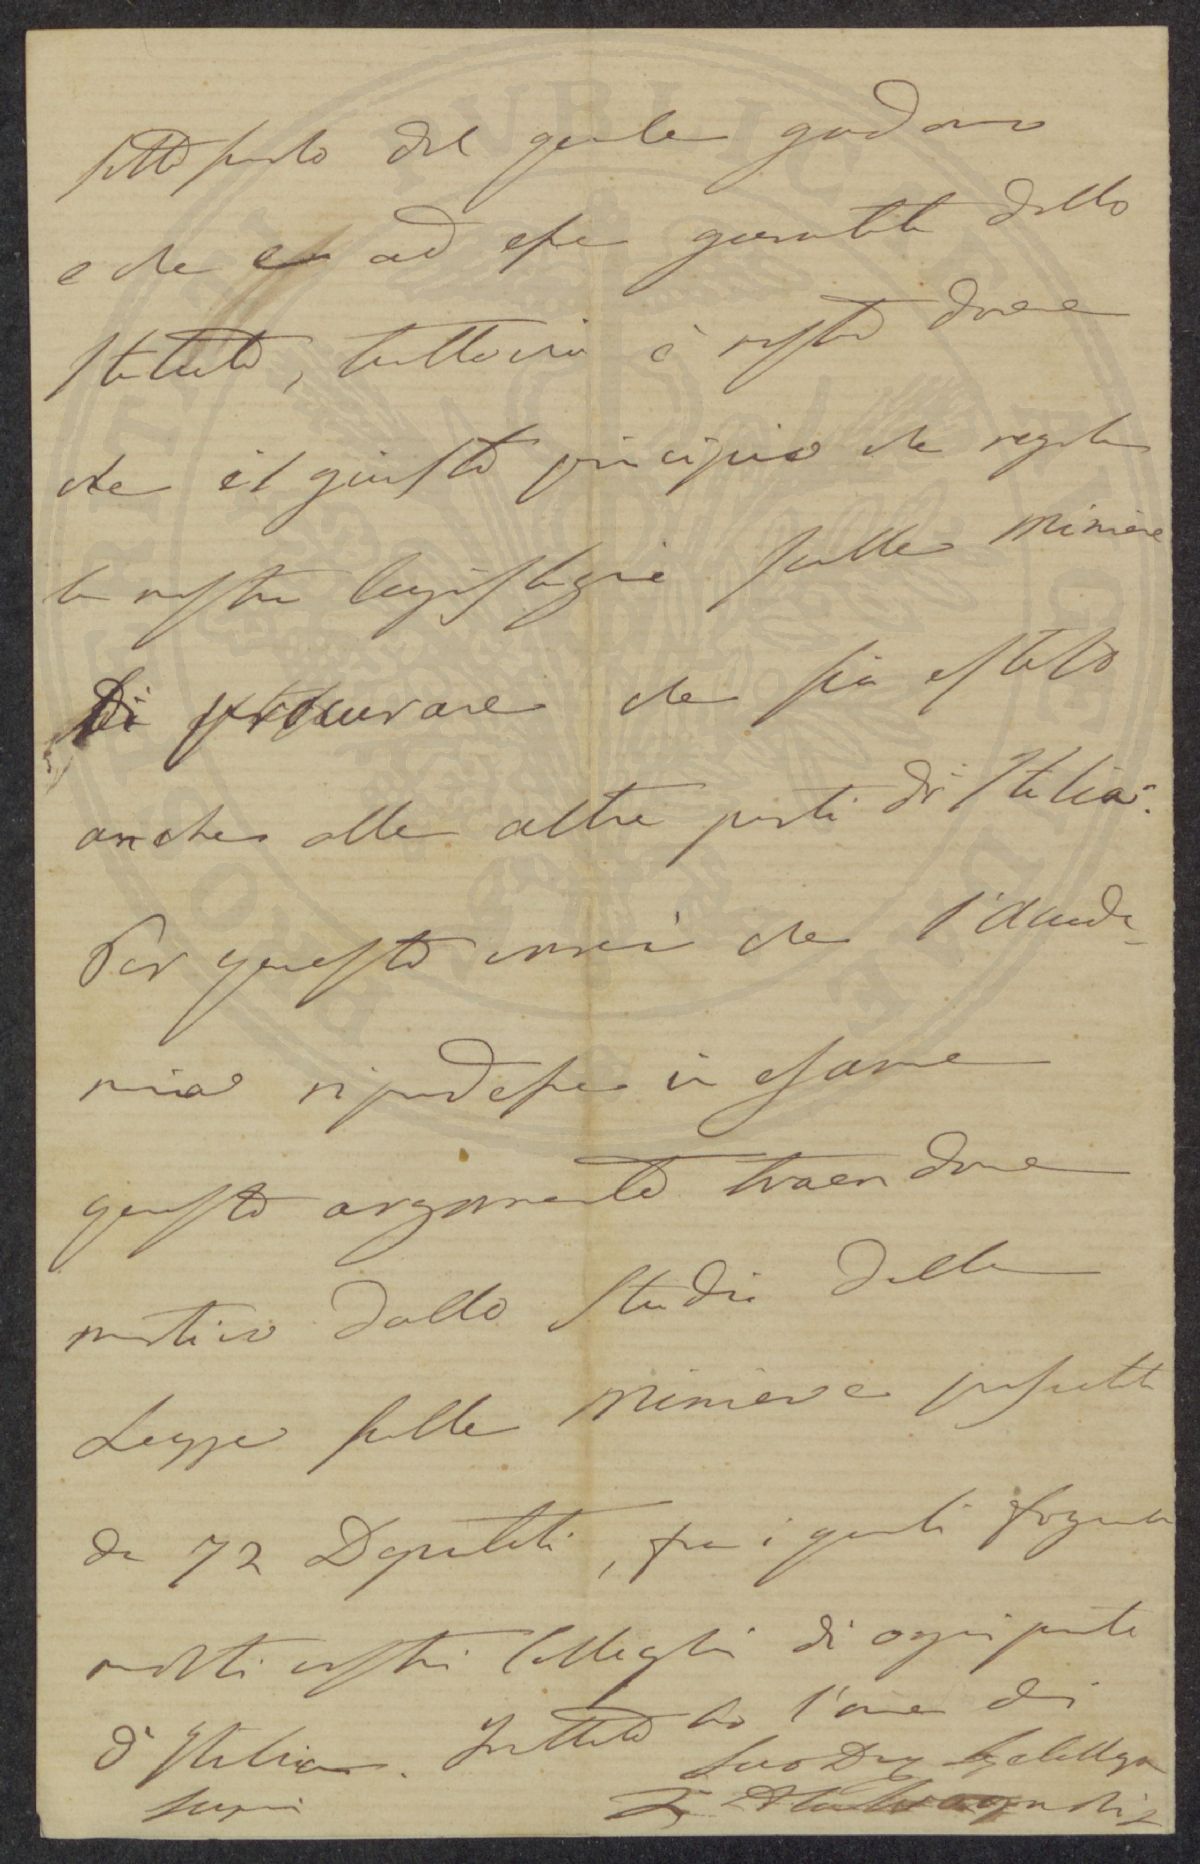 sottosuolo del quale godono
e che ad esse garantito dallo
Statuto, tuttavia è nostro dovere
che il giusto principio che regola
la nostra legislazione sulle Miniere
di procurare che sia esteso
anche alle altre parti d'Italia.
Per questo vorrei che l'Accade-
mia riprendesse in esame
questo argomento traendone
motivo dallo studio della
Legge sulle Miniere presentata
da 72 Deputati, fra i quali
molti nostri Colleghi di ogni parte
d'Italia. Intanto ho l'onore di
Suo Dev Collega